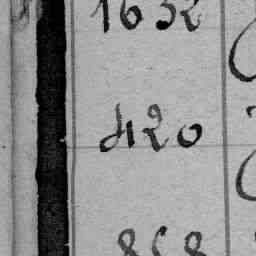 1632
420
858